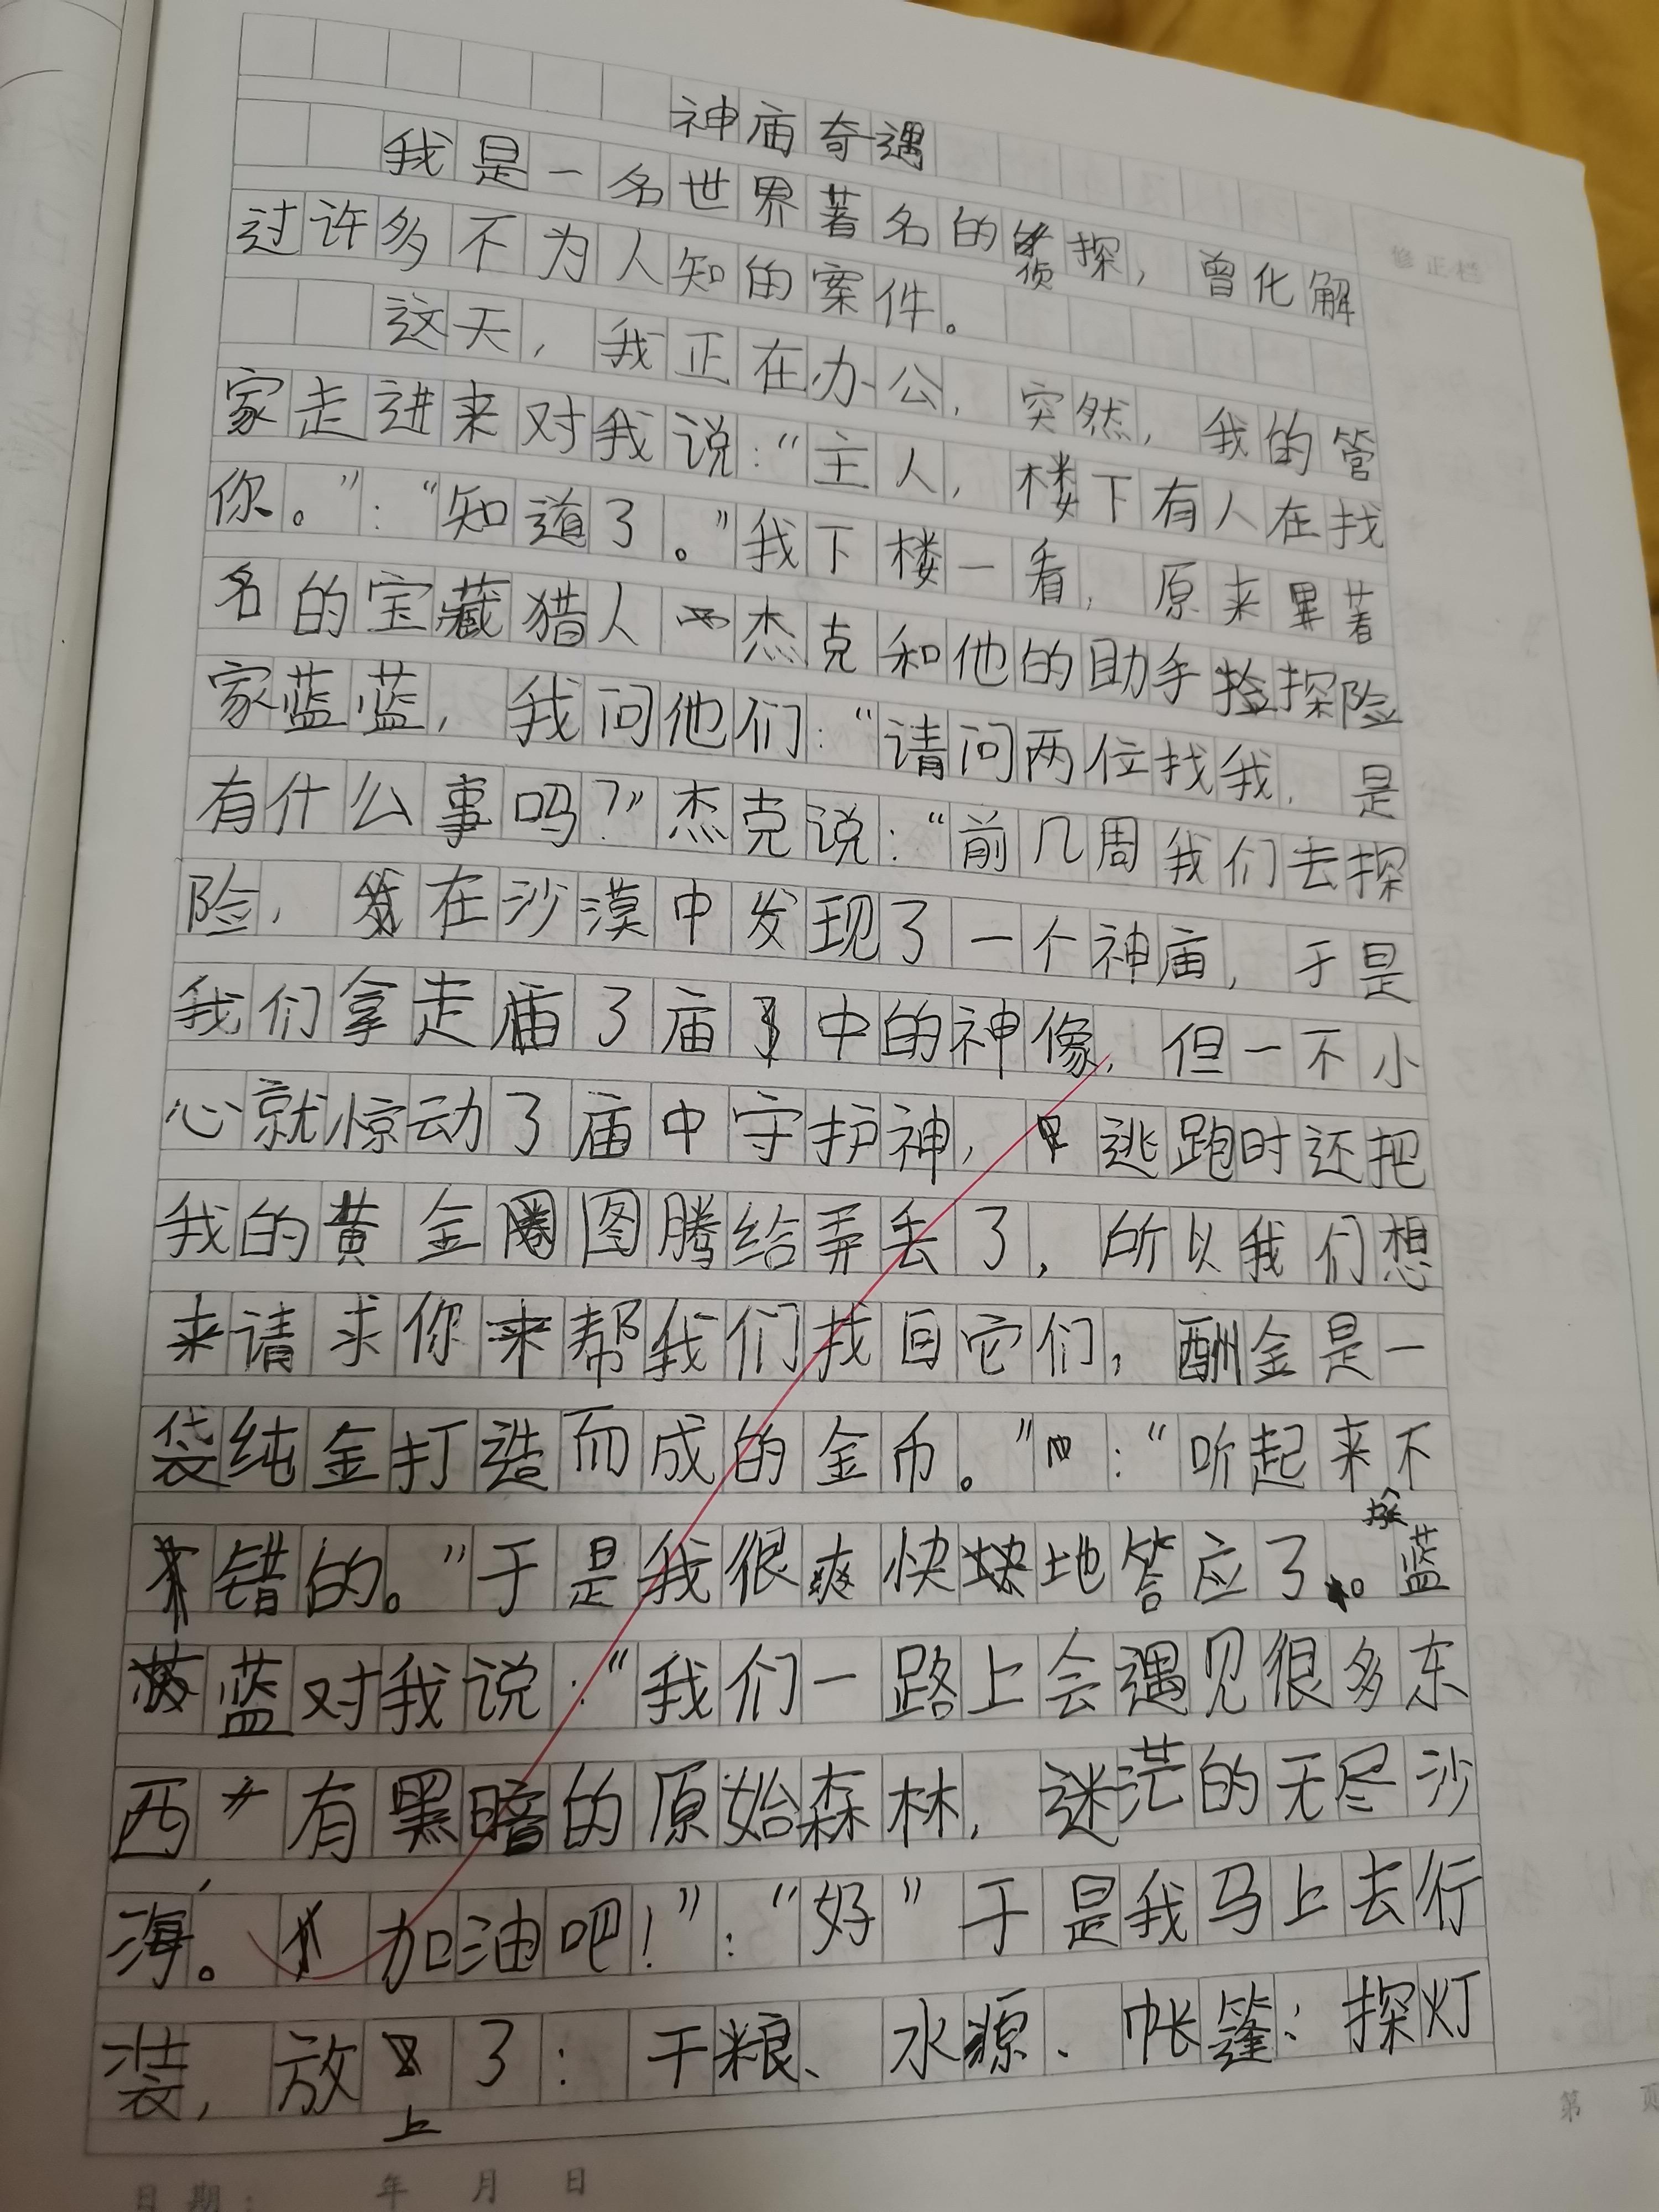 神庙奇遇
我是一名世界著名的侦探，曾化解
修正栏
过许多不为人知的案件。
这天，我正在办公，突然，我的管
家走进来对我说：“主人，楼下有人在找
你。”：“知道了。”我下楼一看，原来是著
名的宝藏猎人杰克和他的助手探险
家蓝蓝，我问他们：“请问两位找我，是
有什么事吗？”杰克说：“前几周我们去探
险，在沙漠中发现了一个神庙，于是
我们拿走了庙中的神像，但一不小
心就惊动了庙中守护神，逃跑时还把
我的黄金图腾给弄丢了，所以我们想
来请求你来帮我们找回它们，酬金是一
袋纯金打造而成的金币。”：“听起来不
错的。”于是我很爽快地答应了。蓝
蓝对我说：“我们一路上会遇见很多东
西，有黑暗的原始森林，迷茫的无尽沙
海。加油吧！”：“好”于是我马上去行
装，放上了：干粮、水源、帐篷：探灯
第 页
日期： 年 月 日